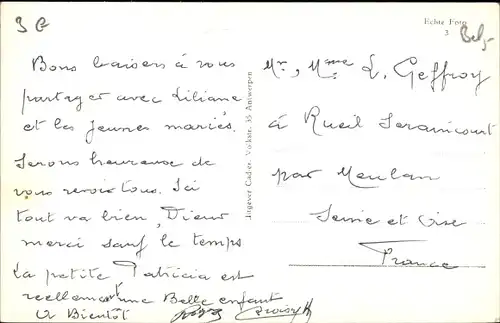 3 G
Echte Foto
3
Belg.
Bons baisers à vous
partager avec Liliane
et les jeunes mariés.
Serons heureuse de
vous revoir tous. Ici
tout va bien, Dieu
merci sauf le temps
la petite Patricia est
reellement une Belle enfant
a Bientôt
Uitgever Cad-er. Volkstr. 35 Antwerpen
Mr, Mme L. Geffroy
à Rueil Seraincourt
par Meulan
Seine et Oise
France